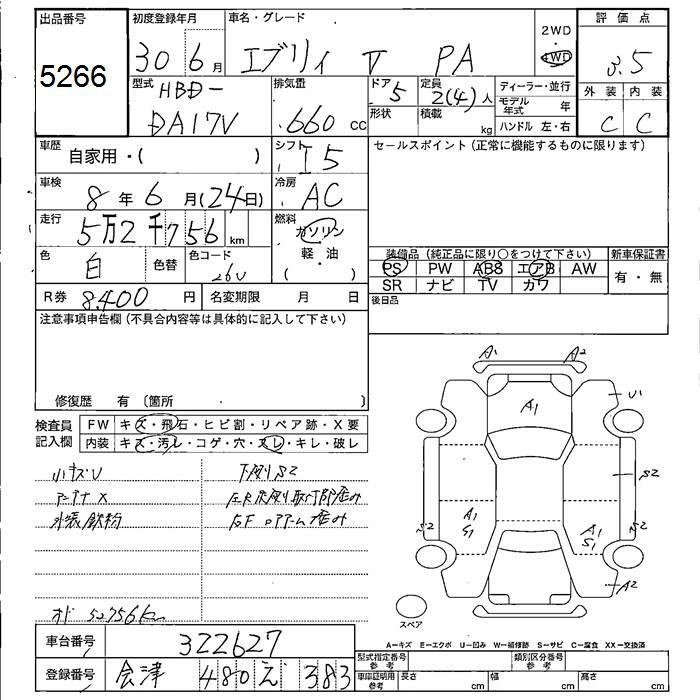 出品番号
5266
初度登録年月
30年 6月
車名・グレード
エブリィ V PA
2WD
・
4WD
評価点
3.5
型式
HBD-
DA17V
排気量
660 cc
ドア
5
形状
定員
2(4)人
積載
kg
ディーラー・並行
モデル年式 年
ハンドル 左・右
外装 内装
C C
車歴
自家用・( )
シフト
I5
セールスポイント(正常に機能するものに限ります)
車検
8年 6月(24日)
冷房
AC
走行
5万2千756 km
燃料
ガソリン
軽・油
( )
色
白
色替
色コード
26U
装備品(純正品に限り〇をつけて下さい)
新車保証書
PS PW ABS エアB AW
SR ナビ TV カワ
有・無
R券 8,400 円
名変期限 月 日
後日品
注意事項申告欄(不具合内容等は具体的に記入して下さい)
修復歴 有〔箇所 〕
検査員記入欄
FW キズ・飛石・ヒビ割・リペア跡・X要
内装 キズ・汚レ・コゲ・穴・スレ・キレ・破レ
小キズU
下廻りS2
アンテナX
外装鉄粉
オド 52756km
A1 A2
A1
U1
S2
S2
S2
A1
S1
A1
S1
A2
スペア
A=キズ E=エクボ U=凹み W=補修跡 S=サビ C=腐食 XX=交換済
車台番号
322627
登録番号
会津 480 え 383
型式指定番号
参考
類別区分番号
参考
車庫証明用
参考
長さ cm
幅 cm
高さ cm